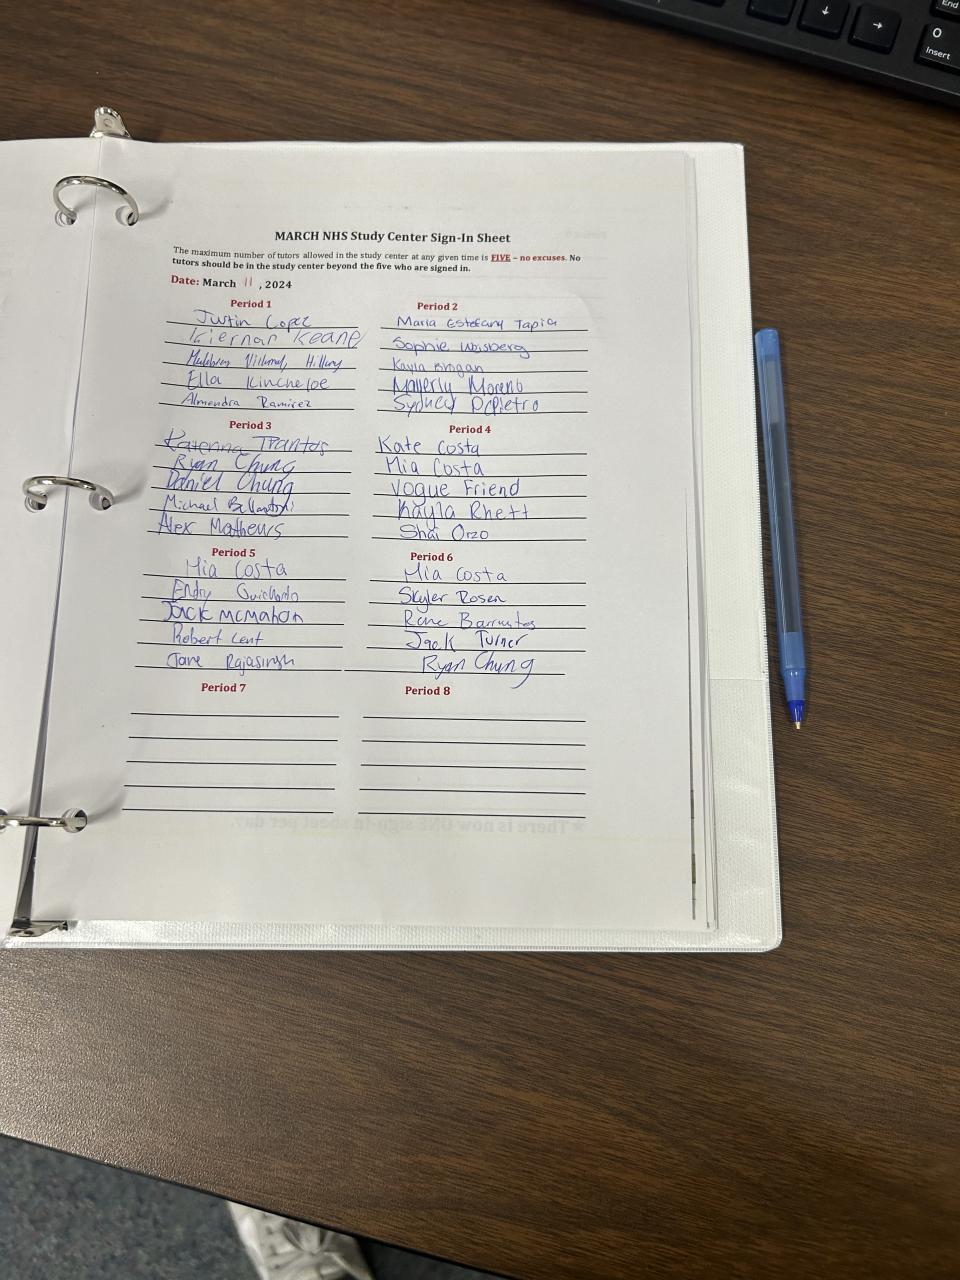 MARCH NHS Study Center Sign-In Sheet
The maximum number of tutors allowed in the study center at any given time is FIVE – no excuses. No
tutors should be in the study center beyond the five who are signed in.
Date: March 11, 2024
Period 1
Justin Lopez
Kiernan Keane
Villumal, Hillary
Ella Kincheloe
Almendra Ramirez
Period 2
Maria Estefany Tapia
Sophie Weisberg
Kayla Brogan
Mayerly Moreno
Sydney DePietro
Period 3
Katerina Trantos
Ryan Chung
Daniel Chung
Michael
Alex Mathews
Period 4
Kate Costa
Mia Costa
Vogue Friend
Kayla Rhett
Shai Orzo
Period 5
Mia Costa
Quichardo
Jack McMahon
Robert Lent
Jane Rajasingh
Period 6
Mia Costa
Skyler Rosen
Barrientos
Jack Turner
Ryan Chung
Period 7
Period 8
★There is now ONE sign-in sheet per day.
End
↓
→
0
Insert